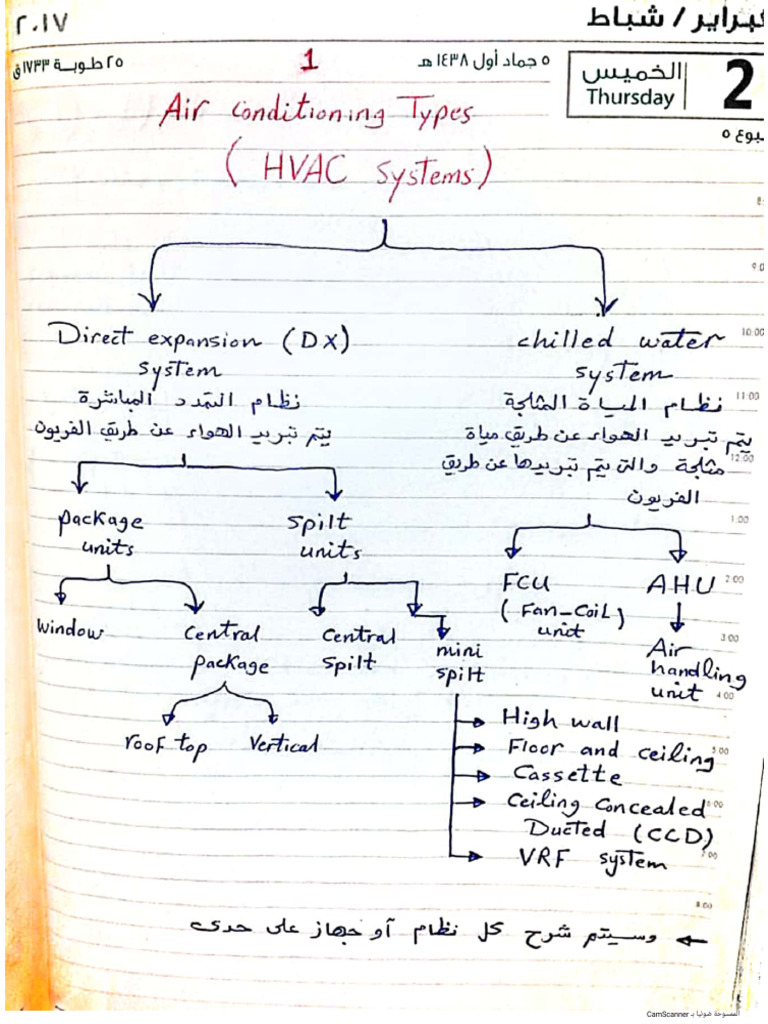 ٢٠١٧
فبراير / شباط
٢٥ طوبـة ١٧٣٣ق
1
٥ جماد أول ١٤٣٨ هـ
الخميس
Thursday
2
بوع ٥
Air Conditioning Types
( HVAC Systems )
Direct expansion (DX)
system
نظام التمدد المباشرة
يتم تبريد الهواء عن طريق الفريون
chilled water
system
نظام المياة المثلجة
يتم تبريد الهواء عن طريق مياة
مثلجة والتى يتم تبريدها عن طريق
الفريون
package
units
spilt
units
FCU
( Fan-Coil )
unit
AHU
Air
handling
unit
window
Central
package
Central
spilt
mini
spilt
roof top
Vertical
High wall
Floor and ceiling
Cassette
Ceiling Concealed
Ducted (CCD)
VRF system
وسيتم شرح كل نظام أو جهاز على حدى
9:0
10:00
11:00
12:00
1:00
2:00
3:00
4:00
5:00
6:00
7:00
8:00
الممسوحة ضوئيا بـ CamScanner